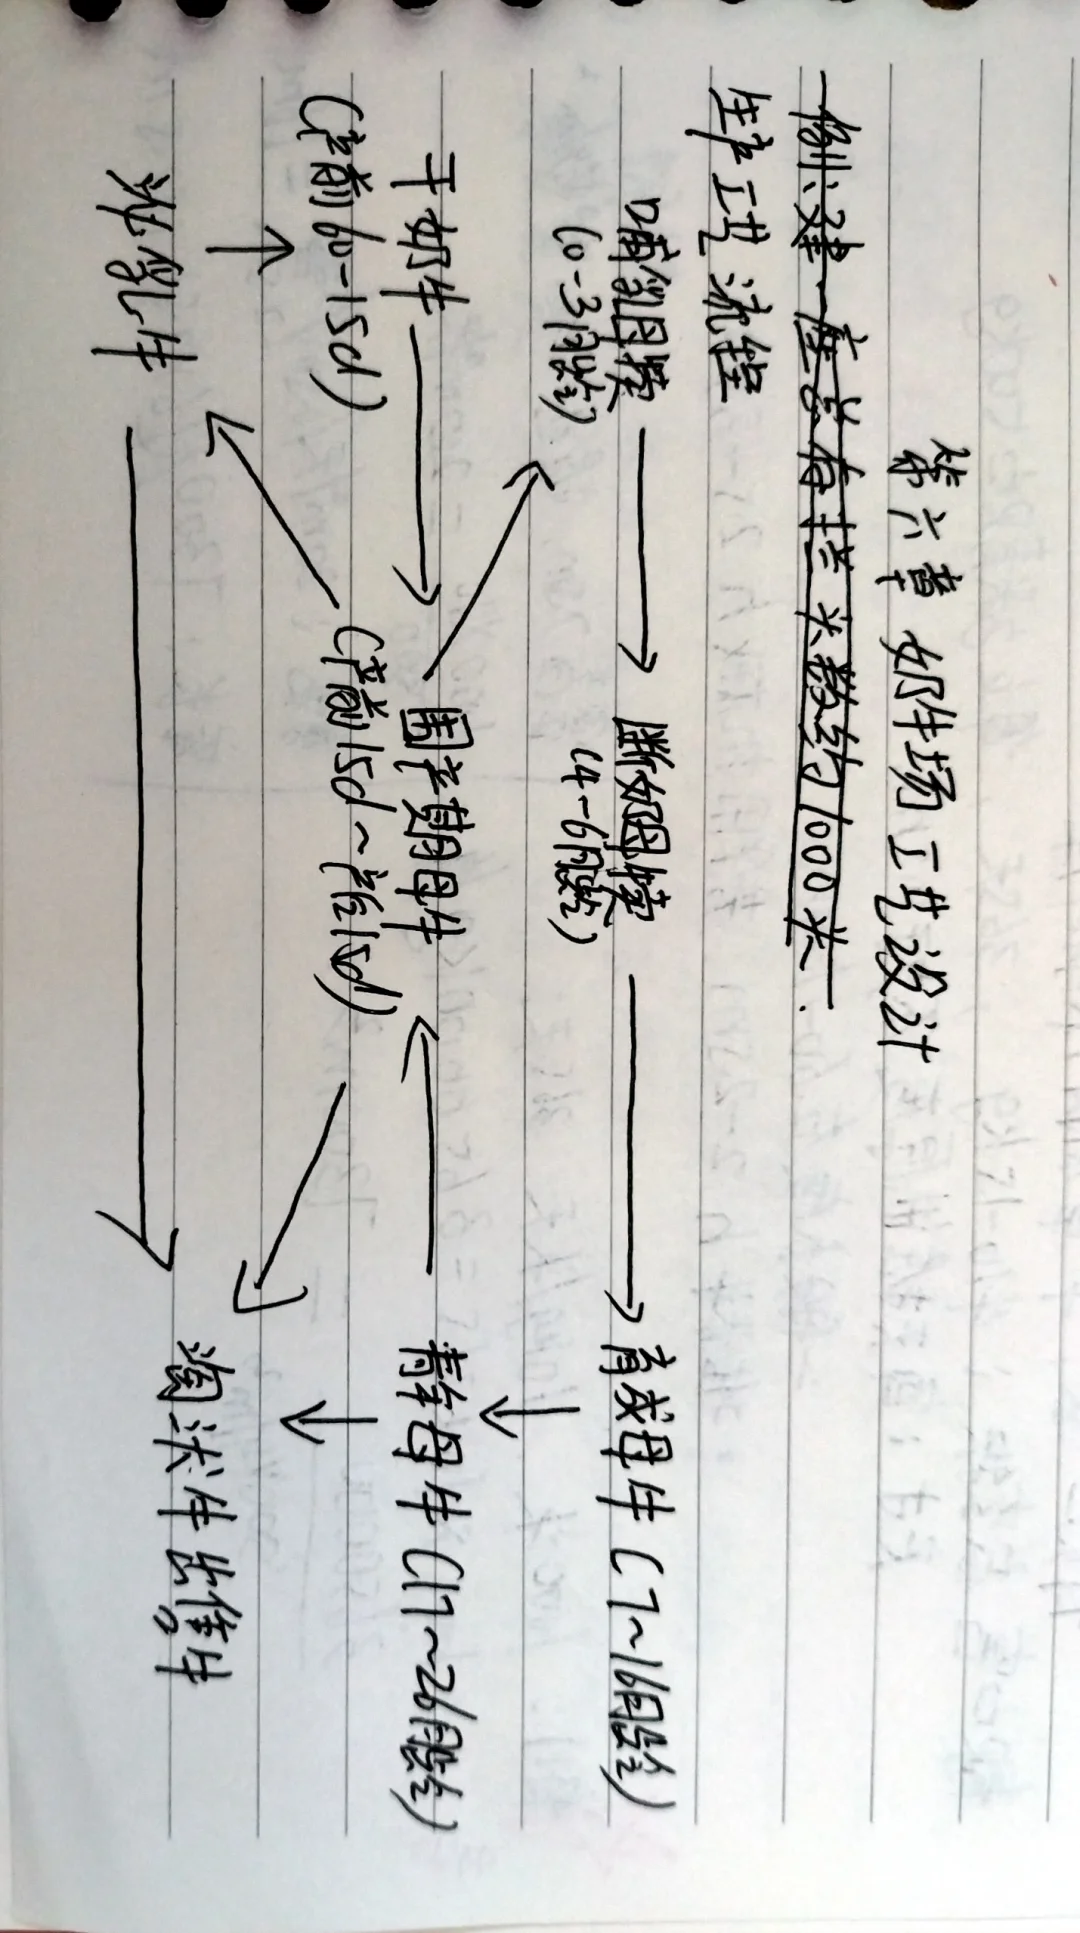 第六章 奶牛场工艺设计
例:建一座总存栏头数约1000头.
生产工艺流程
哺乳母犊 断奶母犊 育成母牛(7~16月龄)
(0-3月龄) (4-6月龄)
干奶牛 围产期母牛 青年母牛(17~26月龄)
(产前60-15d) (产前15d~产后15d)
泌乳牛 淘汰牛出售牛